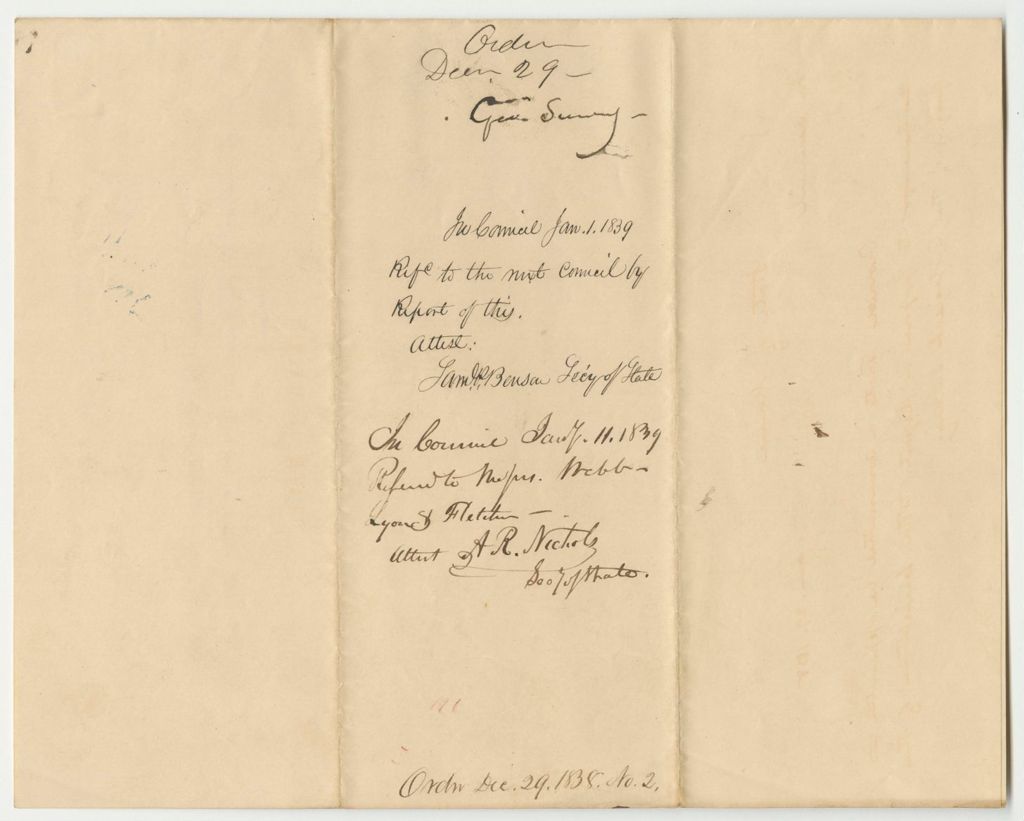 Order
Decr. 29 –
In Council Jan. 1. 1839
Refd to the next Council by
Report of this.
Attest:
Saml P. Benson Secy of State
In Council Jany. 11. 1839
Referred to Messrs. Webb –
Lyon & Fletcher –
Attest A. R. Nichols
Secy of State.
Order Dec. 29. 1838. No. 2.